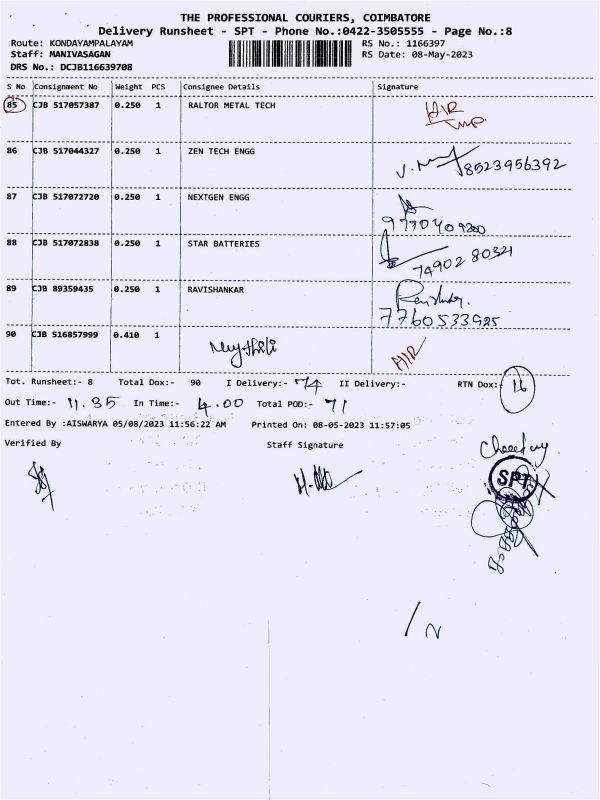 THE PROFESSIONAL COURIERS, COIMBATORE
Delivery Runsheet - SPT - Phone No.:0422-3505555 - Page No.:8
Route: KONDAYAMPALAYAM RS No.: 1166397
Staff: MANIVASAGAN RS Date: 08-May-2023
DRS No.: DCJB116639708
S No Consignment No Weight PCS Consignee Details Signature
85 CJB 517057387 0.250 1 RALTOR METAL TECH
86 CJB 517044327 0.250 1 ZEN TECH ENGG 8523956392
87 CJB 517072720 0.250 1 NEXTGEN ENGG
88 CJB 517072838 0.250 1 STAR BATTERIES
89 CJB 89359435 0.250 1 RAVISHANKAR
7760533925
90 CJB 516857999 0.410 1 Mythili
Tot. Runsheet:- 8 Total Dox:- 90 I Delivery:- 74 II Delivery:- RTN Dox: 16
Out Time:- 11.35 In Time:- 4.00 Total POD:- 71
Entered By :AISWARYA 05/08/2023 11:56:22 AM Printed On: 08-05-2023 11:57:05
Verified By Staff Signature
SPT